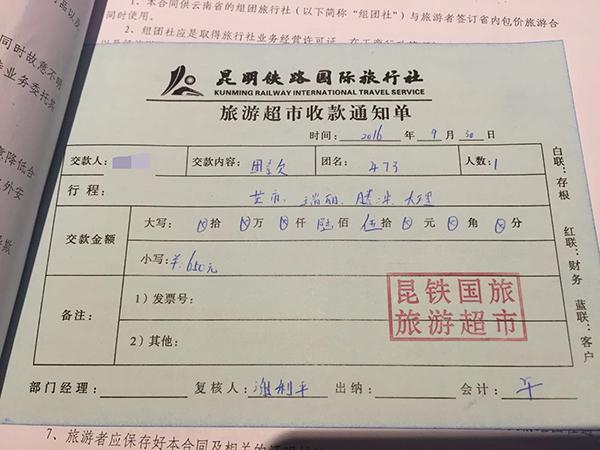 1、本合同供云南省的组团旅行社（以下简称“组团社”）与旅游者签订省内包价旅游合
同时使用。
2、组团社应是取得旅行社业务经营许可证
同时故意不明
业务委托
意降低合
昆明铁路国际旅行社
KUNMING RAILWAY INTERNATIONAL TRAVEL SERVICE
旅游超市收款通知单
时间：2016 年 9 月 30 日
交款人： 交款内容：团款 团名：473 人数：1
行程：芒市、瑞丽、腾冲、大理
交款金额
大写：⊗拾⊗万⊗仟陆佰伍拾⊗元⊗角⊗分
小写：¥650元
备注：
1）发票号：
2）其他：
昆铁国旅
旅游超市
部门经理： 复核人：谢利平 出纳： 会计：平
白联：存根 红联：财务 蓝联：客户
7、旅游者应保存好本合同及相关的